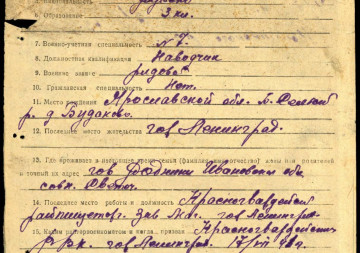 6. Образование 3 кл.
7. Военно-учетная специальность № 7.
8. Должностная квалификация Наводчик
9. Воинское звание рядовой
10. Гражданская специальность Нет.
11. Место рождения Ярославской обл. Б-Сельский
р. д. Будаково.
12. Последнее место жительства гор Ленинград.
13. Где проживает в настоящее время семья (фамилия, имя, отчество) жены или родителей
и точный их адрес гор Родники Ивановской об.
совх.
14. Последнее место работы и должность Красногвардейский
гор Ленинград.
15. Каким райвоенкоматом и когда призван Красногвардейским
Р.В.К. гор Ленинград.